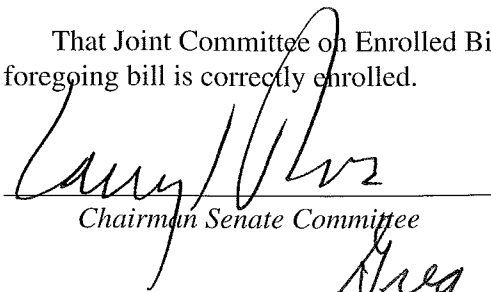 That Joint Committee on Enrolled Bi
foregoing bill is correctly enrolled.
Larry
Chairman Senate Committee
Greg